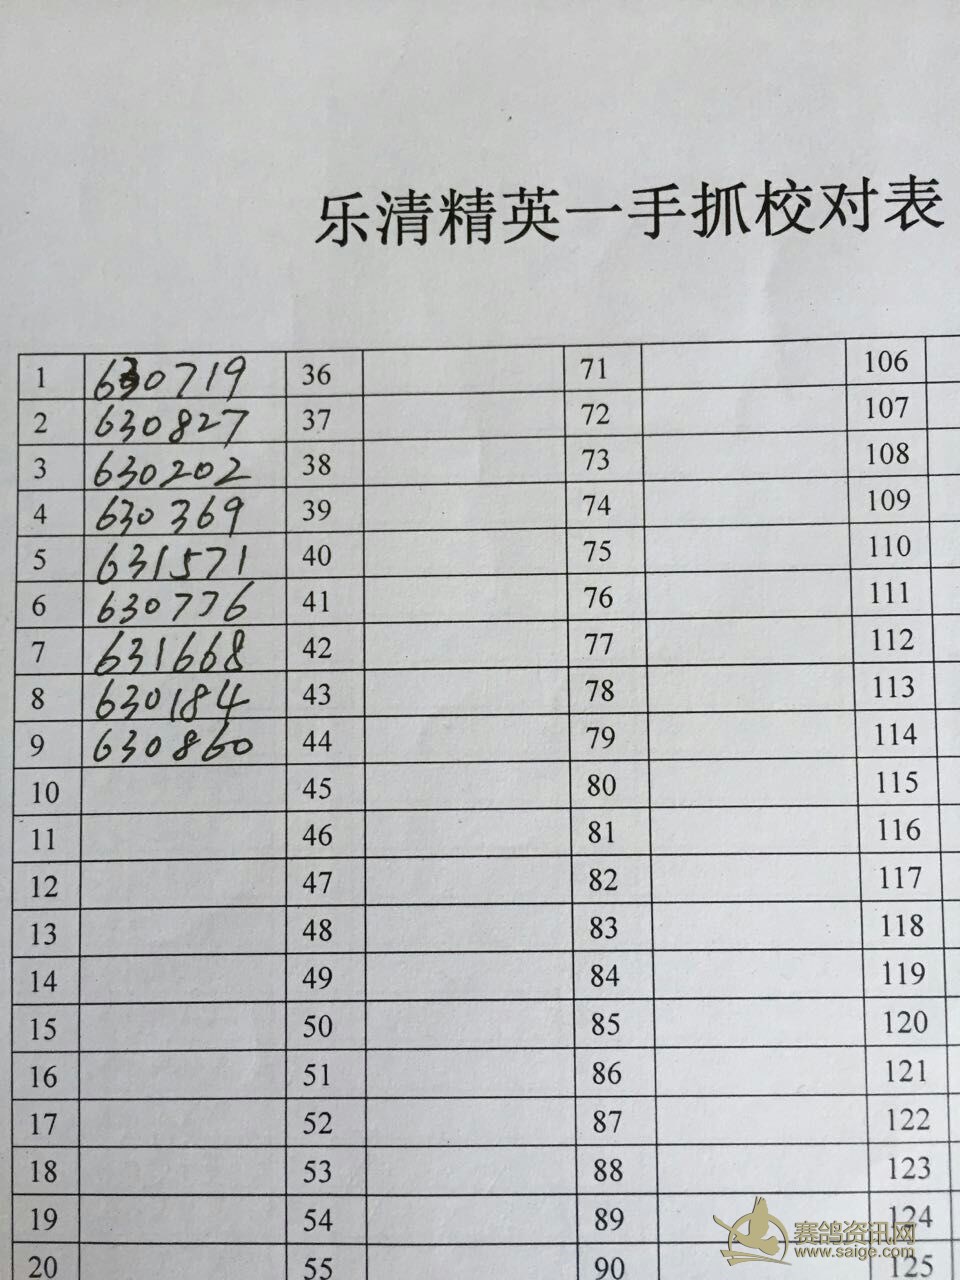 乐清精英一手抓校对表
1 630719 36 71 106
2 630827 37 72 107
3 630202 38 73 108
4 630369 39 74 109
5 631571 40 75 110
6 630776 41 76 111
7 631668 42 77 112
8 630184 43 78 113
9 630860 44 79 114
10 45 80 115
11 46 81 116
12 47 82 117
13 48 83 118
14 49 84 119
15 50 85 120
16 51 86 121
17 52 87 122
18 53 88 123
19 54 89 124
20 55 90 125
赛鸽资讯网
www.saige.com